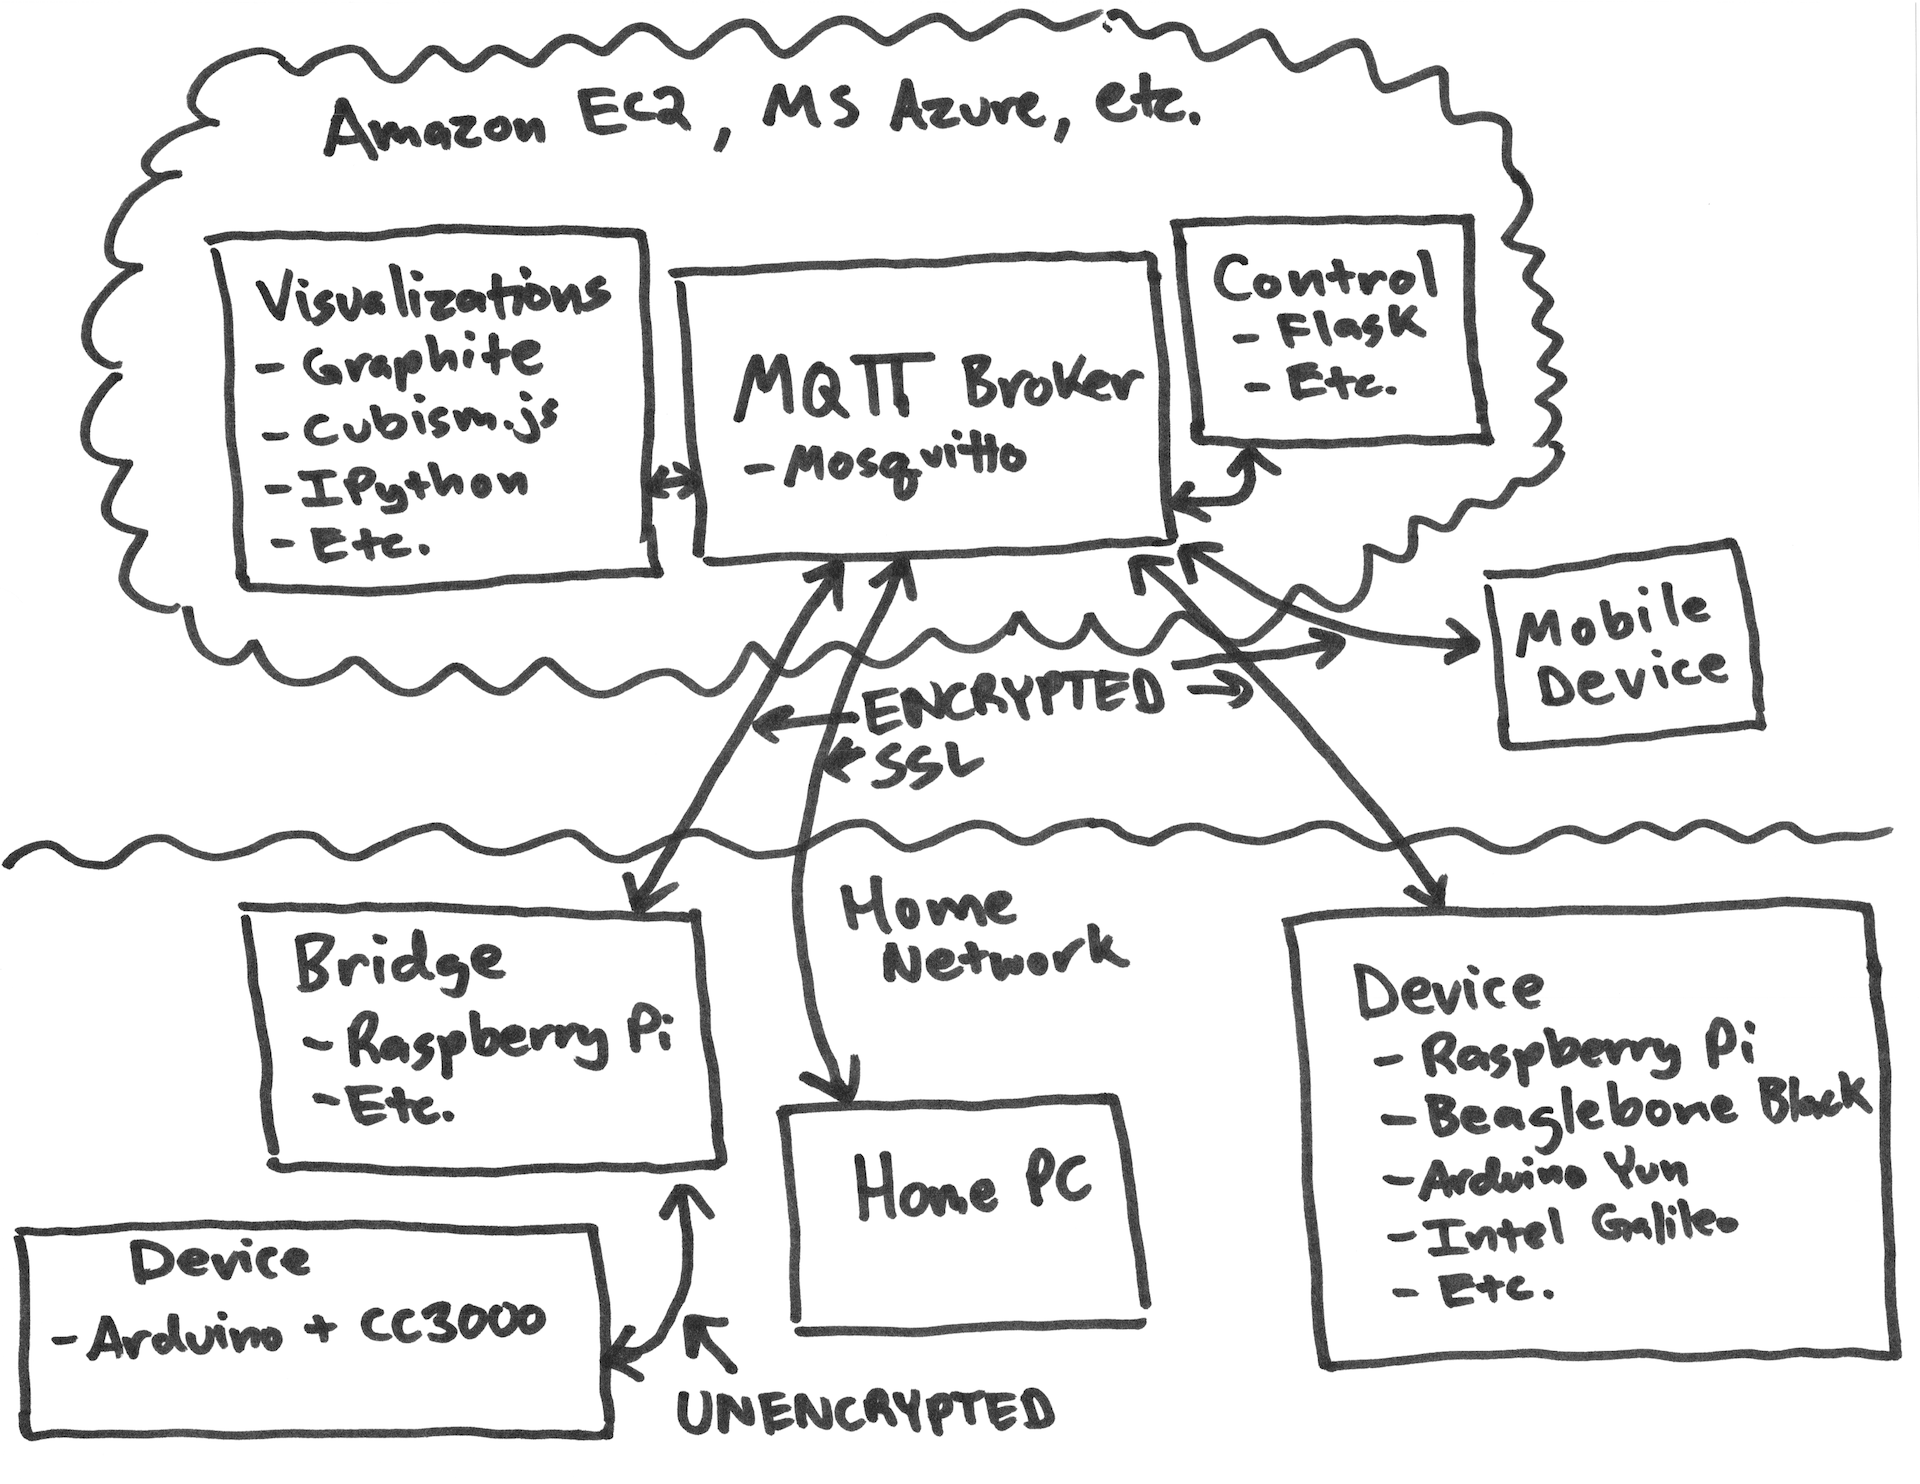 Amazon EC2, MS Azure, etc.
Visualizations
- Graphite
- Cubism.js
- IPython
- Etc.
MQTT Broker
- Mosquitto
Control
- Flask
- Etc.
Mobile
Device
ENCRYPTED
SSL
Home
Network
Bridge
- Raspberry Pi
- Etc.
Home PC
Device
- Raspberry Pi
- Beaglebone Black
- Arduino Yun
- Intel Galileo
- Etc.
Device
- Arduino + CC3000
UNENCRYPTED